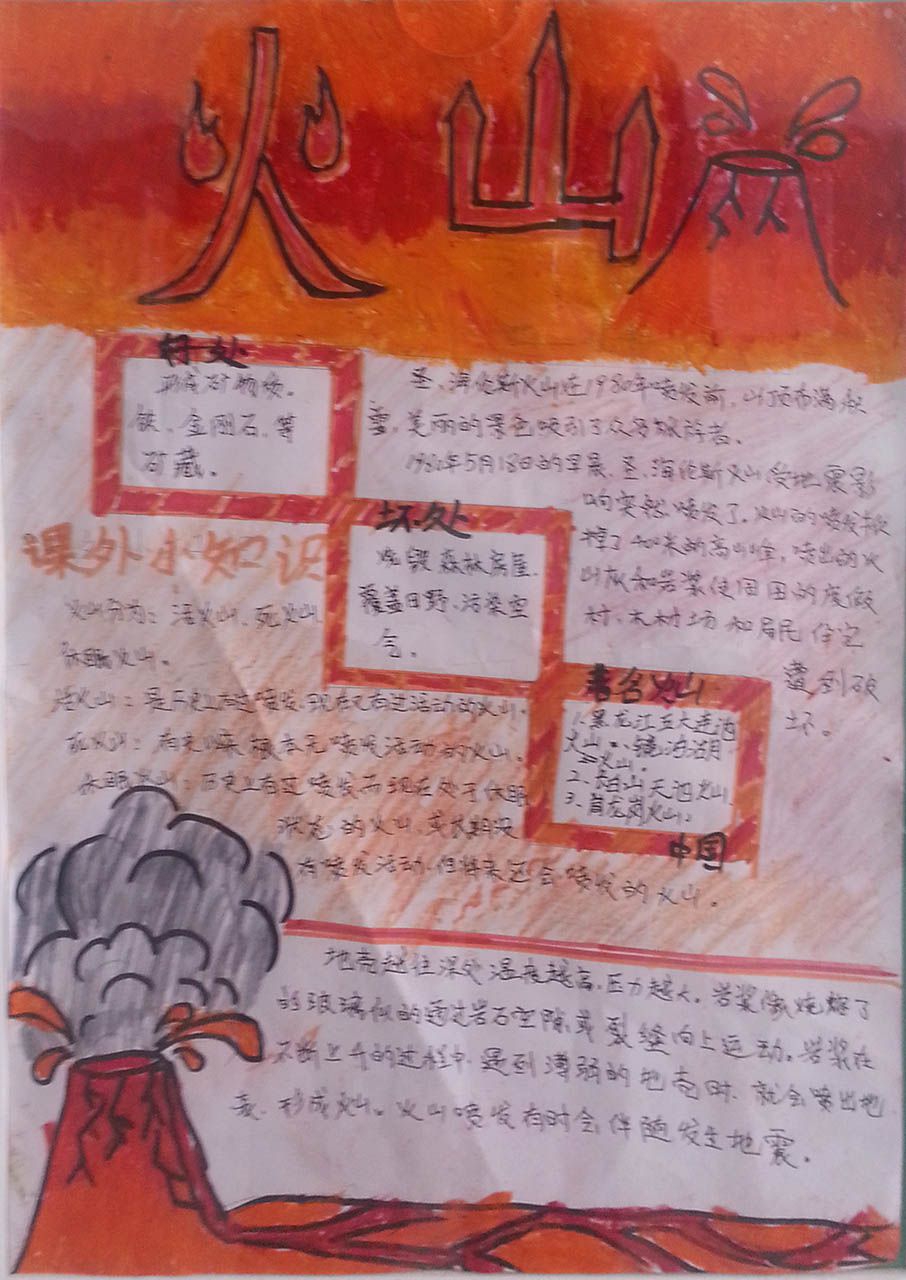 火山
好处
形成矿物质。
铁、金刚石、等
矿藏。
圣、海伦斯火山在1980年喷发前,山顶布满积
雪,美丽的景色吸引了众多旅游者。
1980年5月18日的早晨、圣、海伦斯火山受地震影
响突然喷发了。火山的喷发
掉了400米的高山峰,喷出的火
山灰和岩浆使周围的度假
村、木材场和居民住宅
遭到破
坏。
坏处
烧毁森林房屋、
覆盖田野、污染空
气。
课外小知识
火山分为:活火山、死火山
休眠火山。
活火山:是历史上有过喷发,现在又有过活动的火山。
死火山:有史以来根本无喷发活动的火山。
休眠火山:历史上有过喷发而现在处于休眠
状态的火山,或长期没
有喷发活动,但将来还会喷发的火山。
著名火山
1、黑龙江五大连池
火山、镜泊湖
火山。
2、长白山天池火山
3、火山。
中国
地壳越往深处温度越高、压力越大。岩浆像烧熔了
的玻璃似的通过岩石空隙、或裂缝向上运动。岩浆在
不断上升的过程中,遇到薄弱的地壳时,就会喷出地
表,形成火山。火山喷发有时会伴随发生地震。